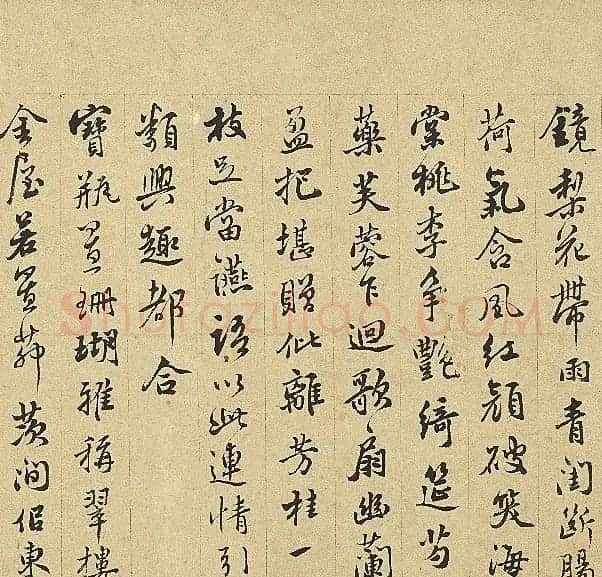 鏡梨花帶雨青閨斷腸
荷氣含風紅顔破笑海
棠桃李爭艷綺筵芍
藥芙蓉下迴歌扇幽蘭
盈把堪贈仳離芳桂一
枝足當讌語以此連情引
類興趣都合
寶瓶置珊瑚雅稱翠樓
金屋若置茆茨澗侶東
Shufaziliao.com